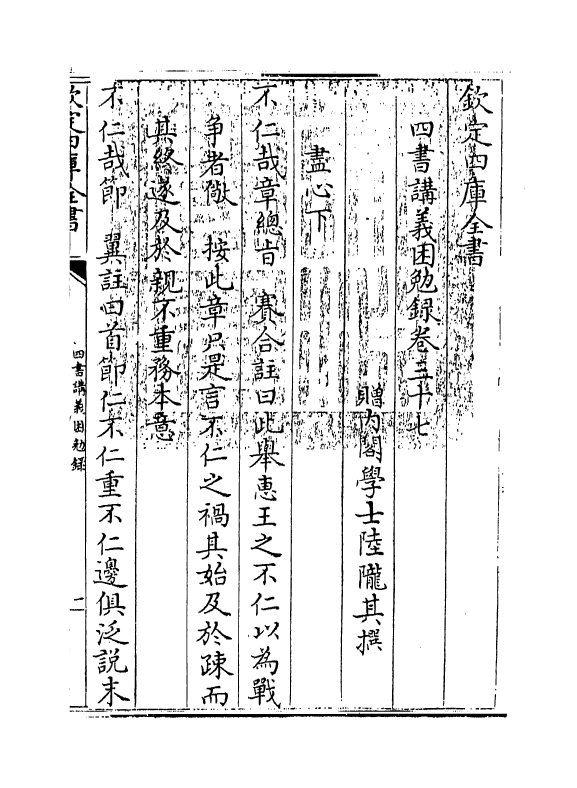 欽定四庫全書
四書講義困勉録卷三十七
贈內閣學士陸隴其撰
盡心下
不仁哉章總旨　賽合註曰此舉惠王之不仁以為戰
爭者儆　按此章只是言不仁之禍其始及於疎而
其終遂及於親不重務本意
不仁哉節　翼註曰首節仁不仁重不仁邊俱泛說末
欽定四庫全書
四書講義困勉録
二